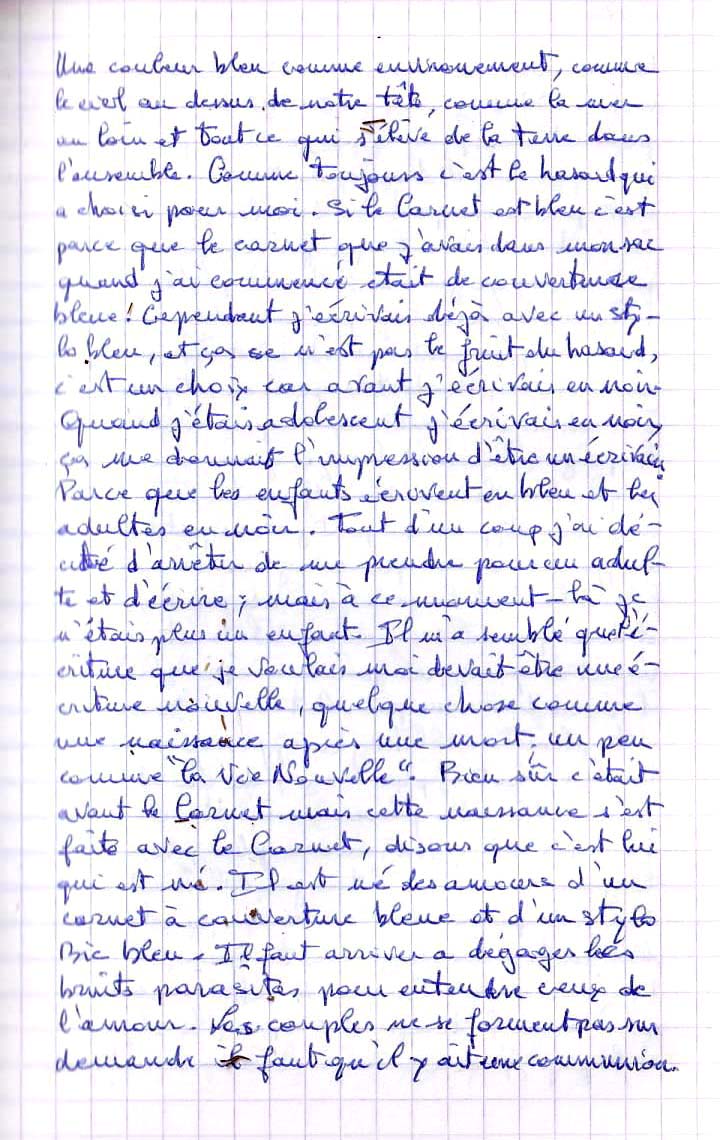 Une couleur bleu comme environnement, comme
le ciel au dessus de notre tête, comme la mer
au loin et tout ce qui s'élève de la terre dans
l'ensemble. Comme toujours c'est le hasard qui
a choisi pour moi. Si le Carnet est bleu c'est
parce que le carnet que j'avais dans mon sac
quand j'ai commencé était de couverture
bleue! Cependant j'écrivais déjà avec un sty-
lo bleu, et ça ce n'est pas le fruit du hasard,
c'est un choix car avant j'écrivais en noir.
Quand j'étais adolescent j'écrivais en noir,
ça me donnait l'impression d'être un écrivain
Parce que les enfants écrivent en bleu et les
adultes en noir. Tout d'un coup j'ai dé-
cidé d'arrêter de me prendre pour un adul-
te et d'écrire; mais à ce moment-là je
n'étais plus un enfant. Il m'a semblé que l'é-
criture que je voulais moi devait être une é-
criture nouvelle, quelque chose comme
une naissance après une mort, un peu
comme "la Vie Nouvelle". Bien sûr c'était
avant le Carnet mais cette naissance s'est
faite avec le Carnet, disons que c'est lui
qui est né. Il est né des amours d'un
carnet à couverture bleue et d'un stylo
Bic bleu. Il faut arriver a dégager les
bruits parasites pour entendre ceux de
l'amour. Les couples ne se forment pas sur
demande il faut qu'il y ait une communion.